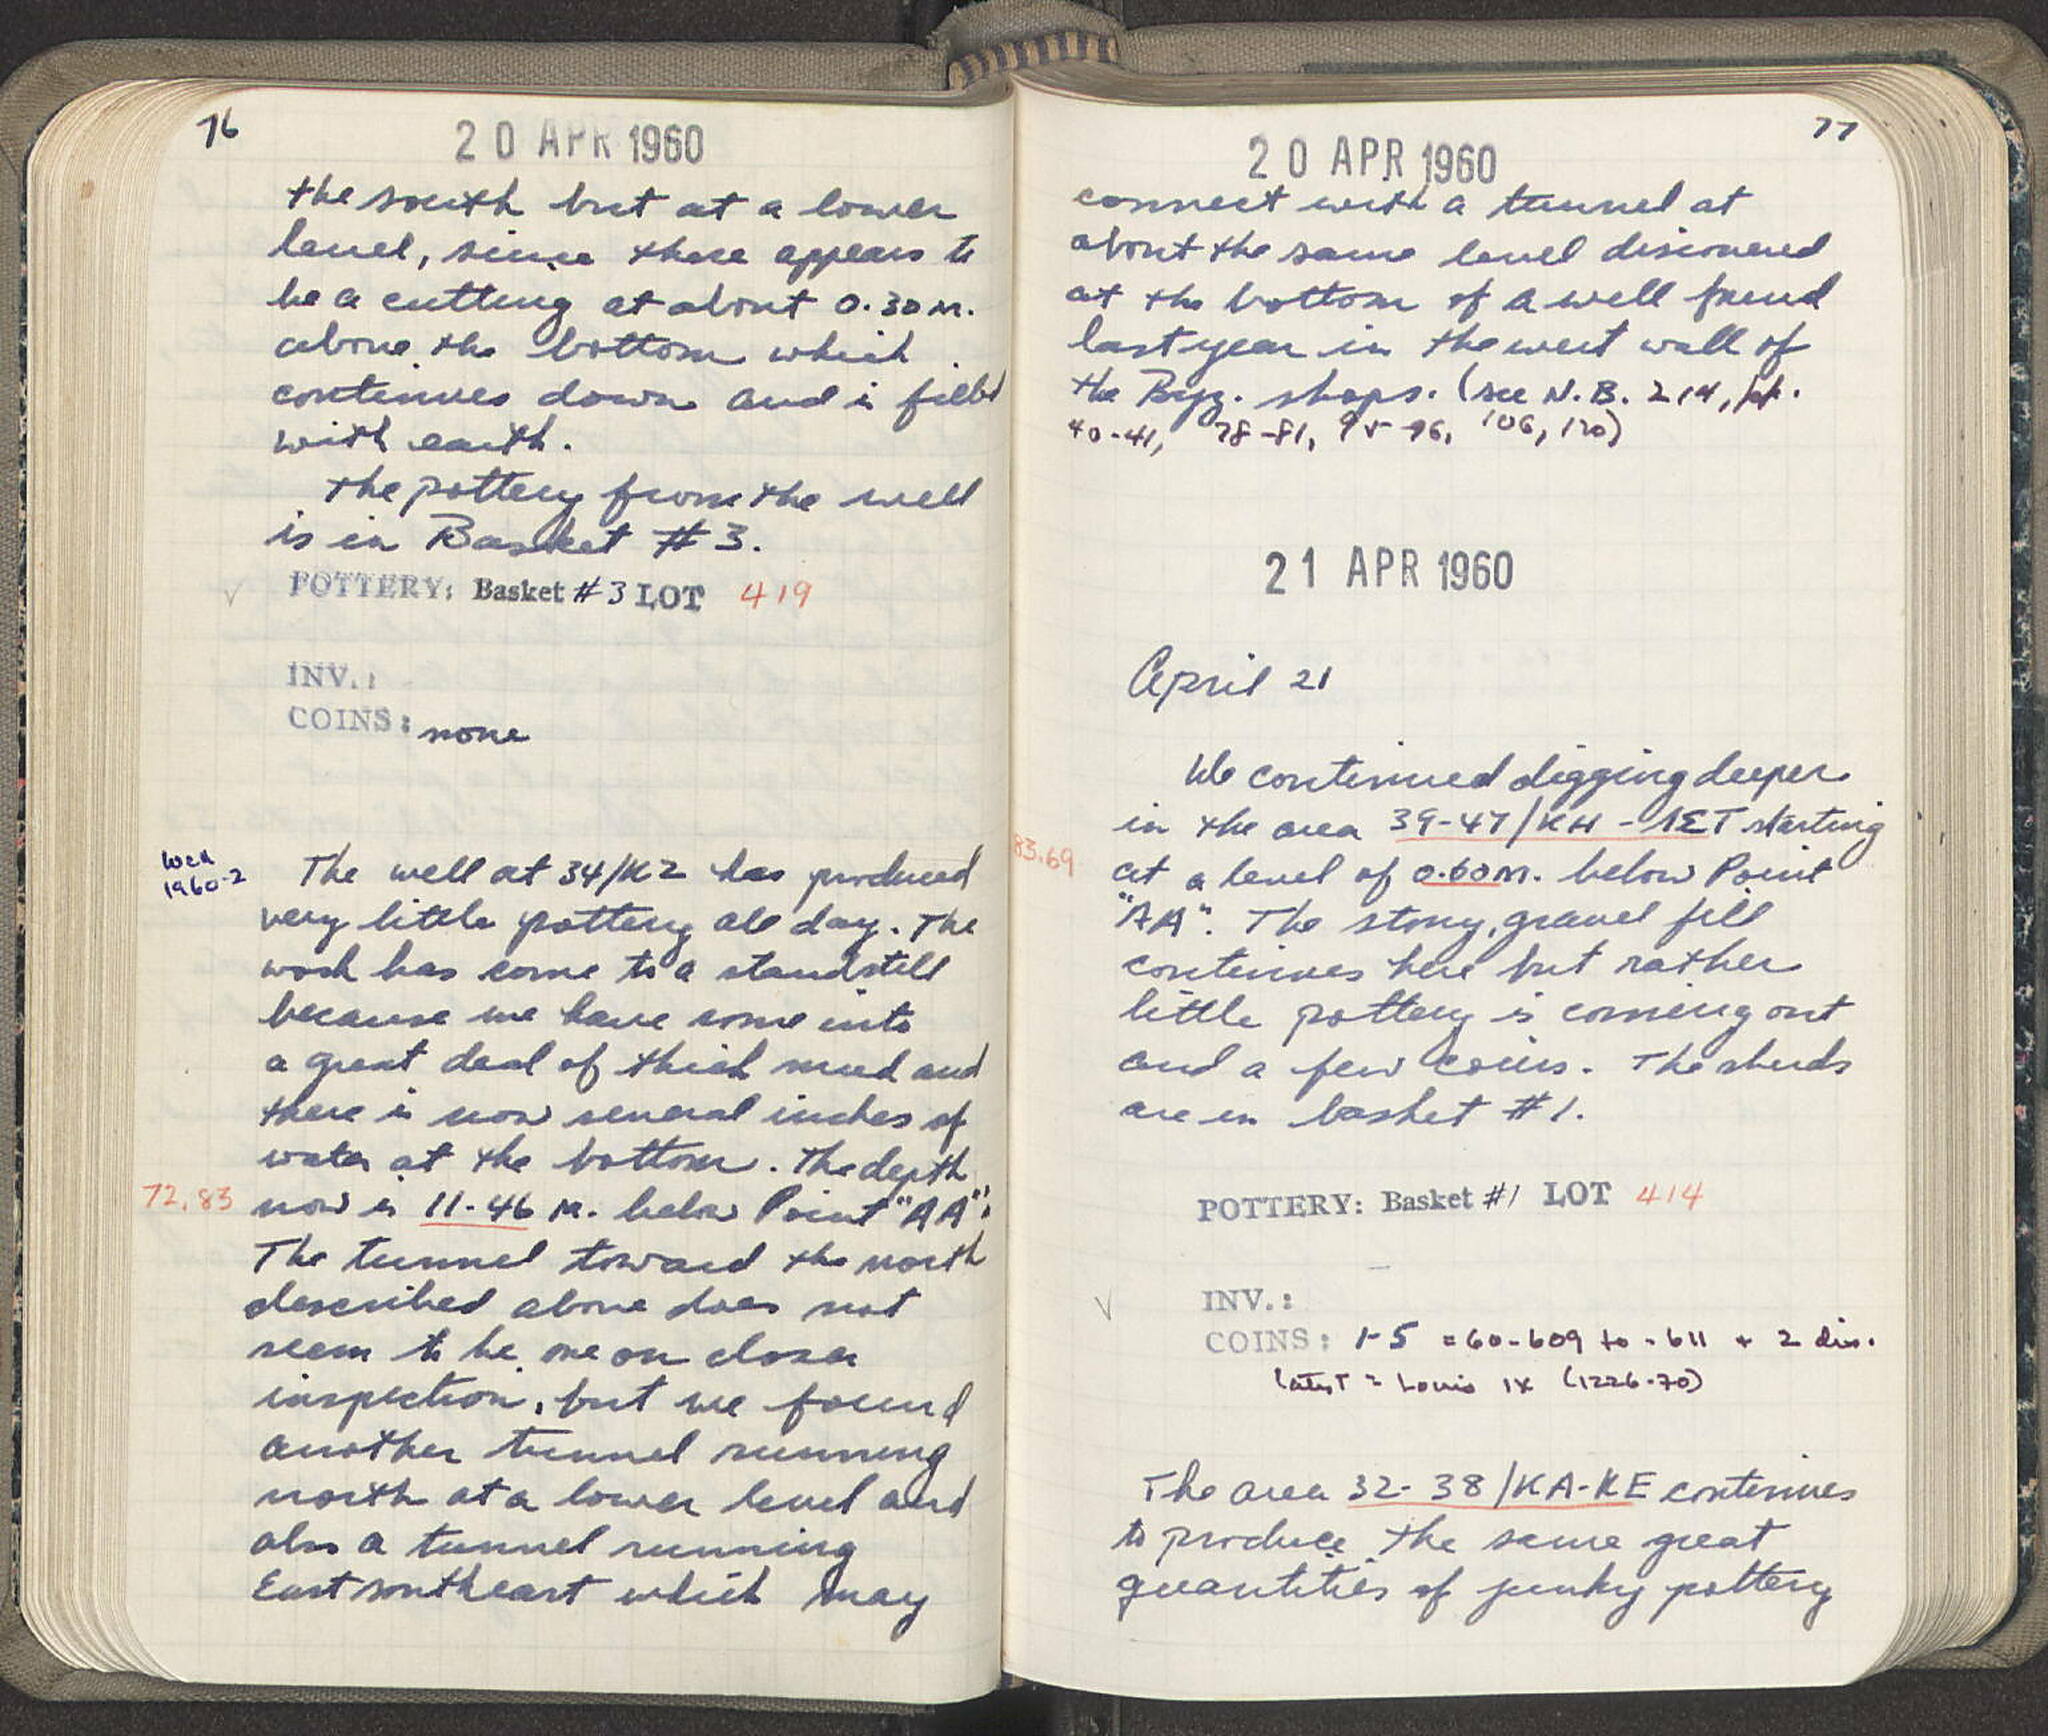 76
20 APR 1960
the south but at a lower
level, since there appears to
be a cutting at about 0.30 m.
above the bottom which
continues down and is filled
with earth.
The pottery from the well
is in Basket #3.
POTTERY: Basket #3 LOT 419
INV.:
COINS: none
Well
1960-2
The well at 34/KZ has produced
very little pottery all day. The
work has come to a standstill
because we have come into
a great deal of thick mud and
there is now several inches of
water at the bottom. The depth
72.83
now is 11.46 m. below Point "AA".
The tunnel toward the north
described above does not
seem to be one on closer
inspection, but we found
another tunnel running
north at a lower level and
also a tunnel running
East southeast which may
77
20 APR 1960
connect with a tunnel at
about the same level discovered
at the bottom of a well found
last year in the west wall of
the Byz. shops. (see N.B. 214, pp.
40-41, 78-81, 95-96, 106, 120)
21 APR 1960
April 21
We continued digging deeper
in the area 39-47/KH-ΛΣΤ starting
83.69
at a level of 0.60 m. below Point
"AA". The stony, gravel fill
continues here but rather
little pottery is coming out
and a few coins. The sherds
are in basket #1.
POTTERY: Basket #1 LOT 414
INV.:
COINS: 1-5 = 60-609 to -611 + 2 dis.
latest = Louis IX (1226-70)
The area 32-38/KA-KE continues
to produce the same great
quantities of junky pottery